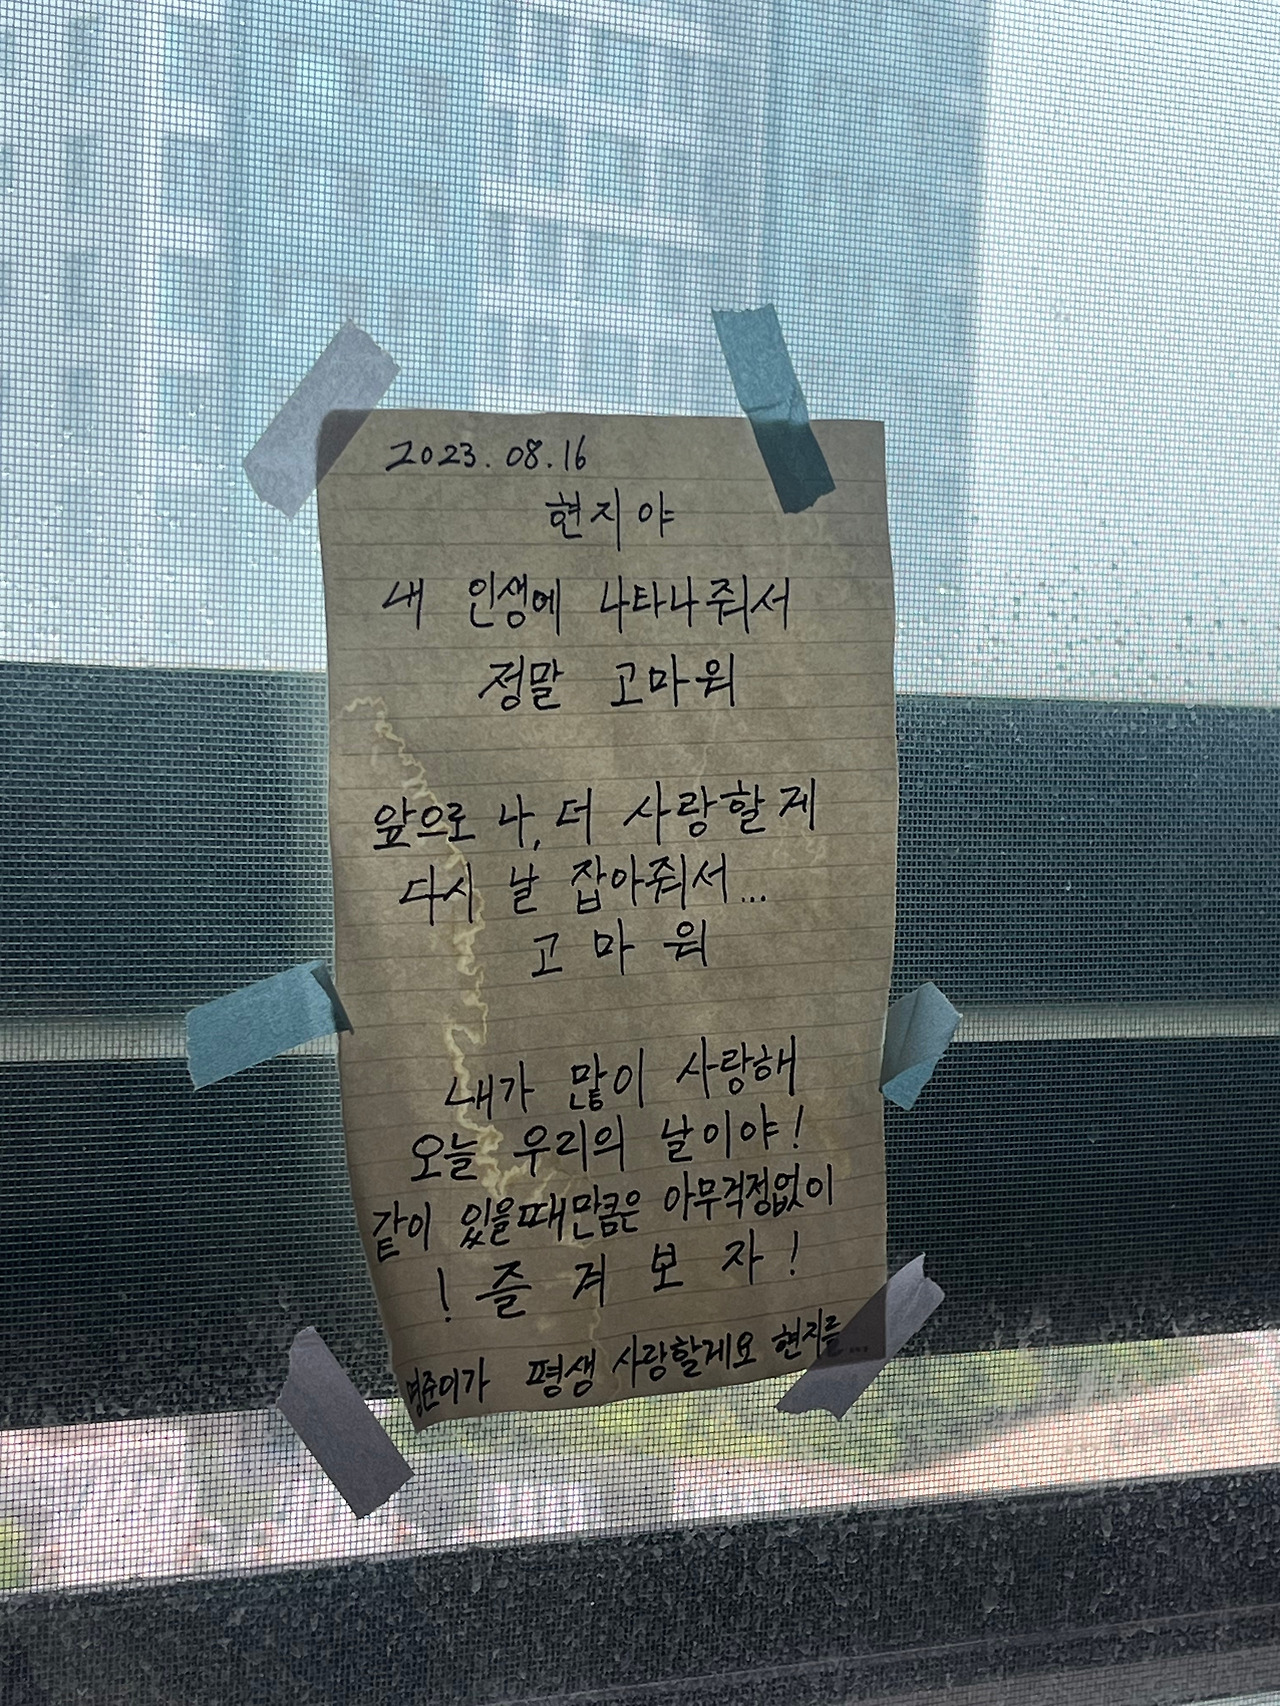 2023. 08.16
현지야
내 인생에 나타나줘서
정말 고마워
앞으로 나, 더 사랑할게
다시 날 잡아줘서...
고마워
내가 많이 사랑해
오늘 우리의 날이야!
같이 있을때만큼은 아무걱정없이
! 즐겨보자!
평생 사랑할게요 현지를...